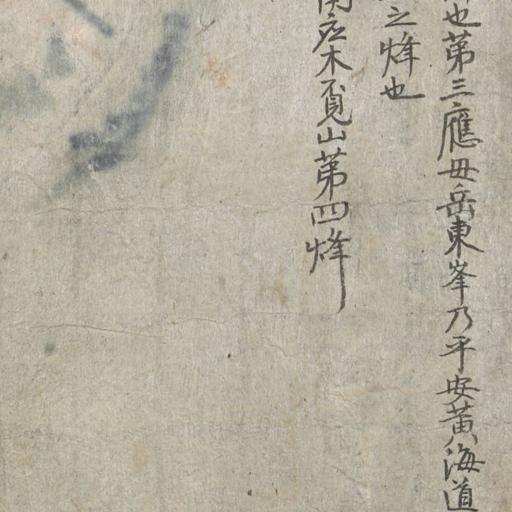 也第三應毋岳東峯乃平安黃海道
之烽也
应木覔山第四烽